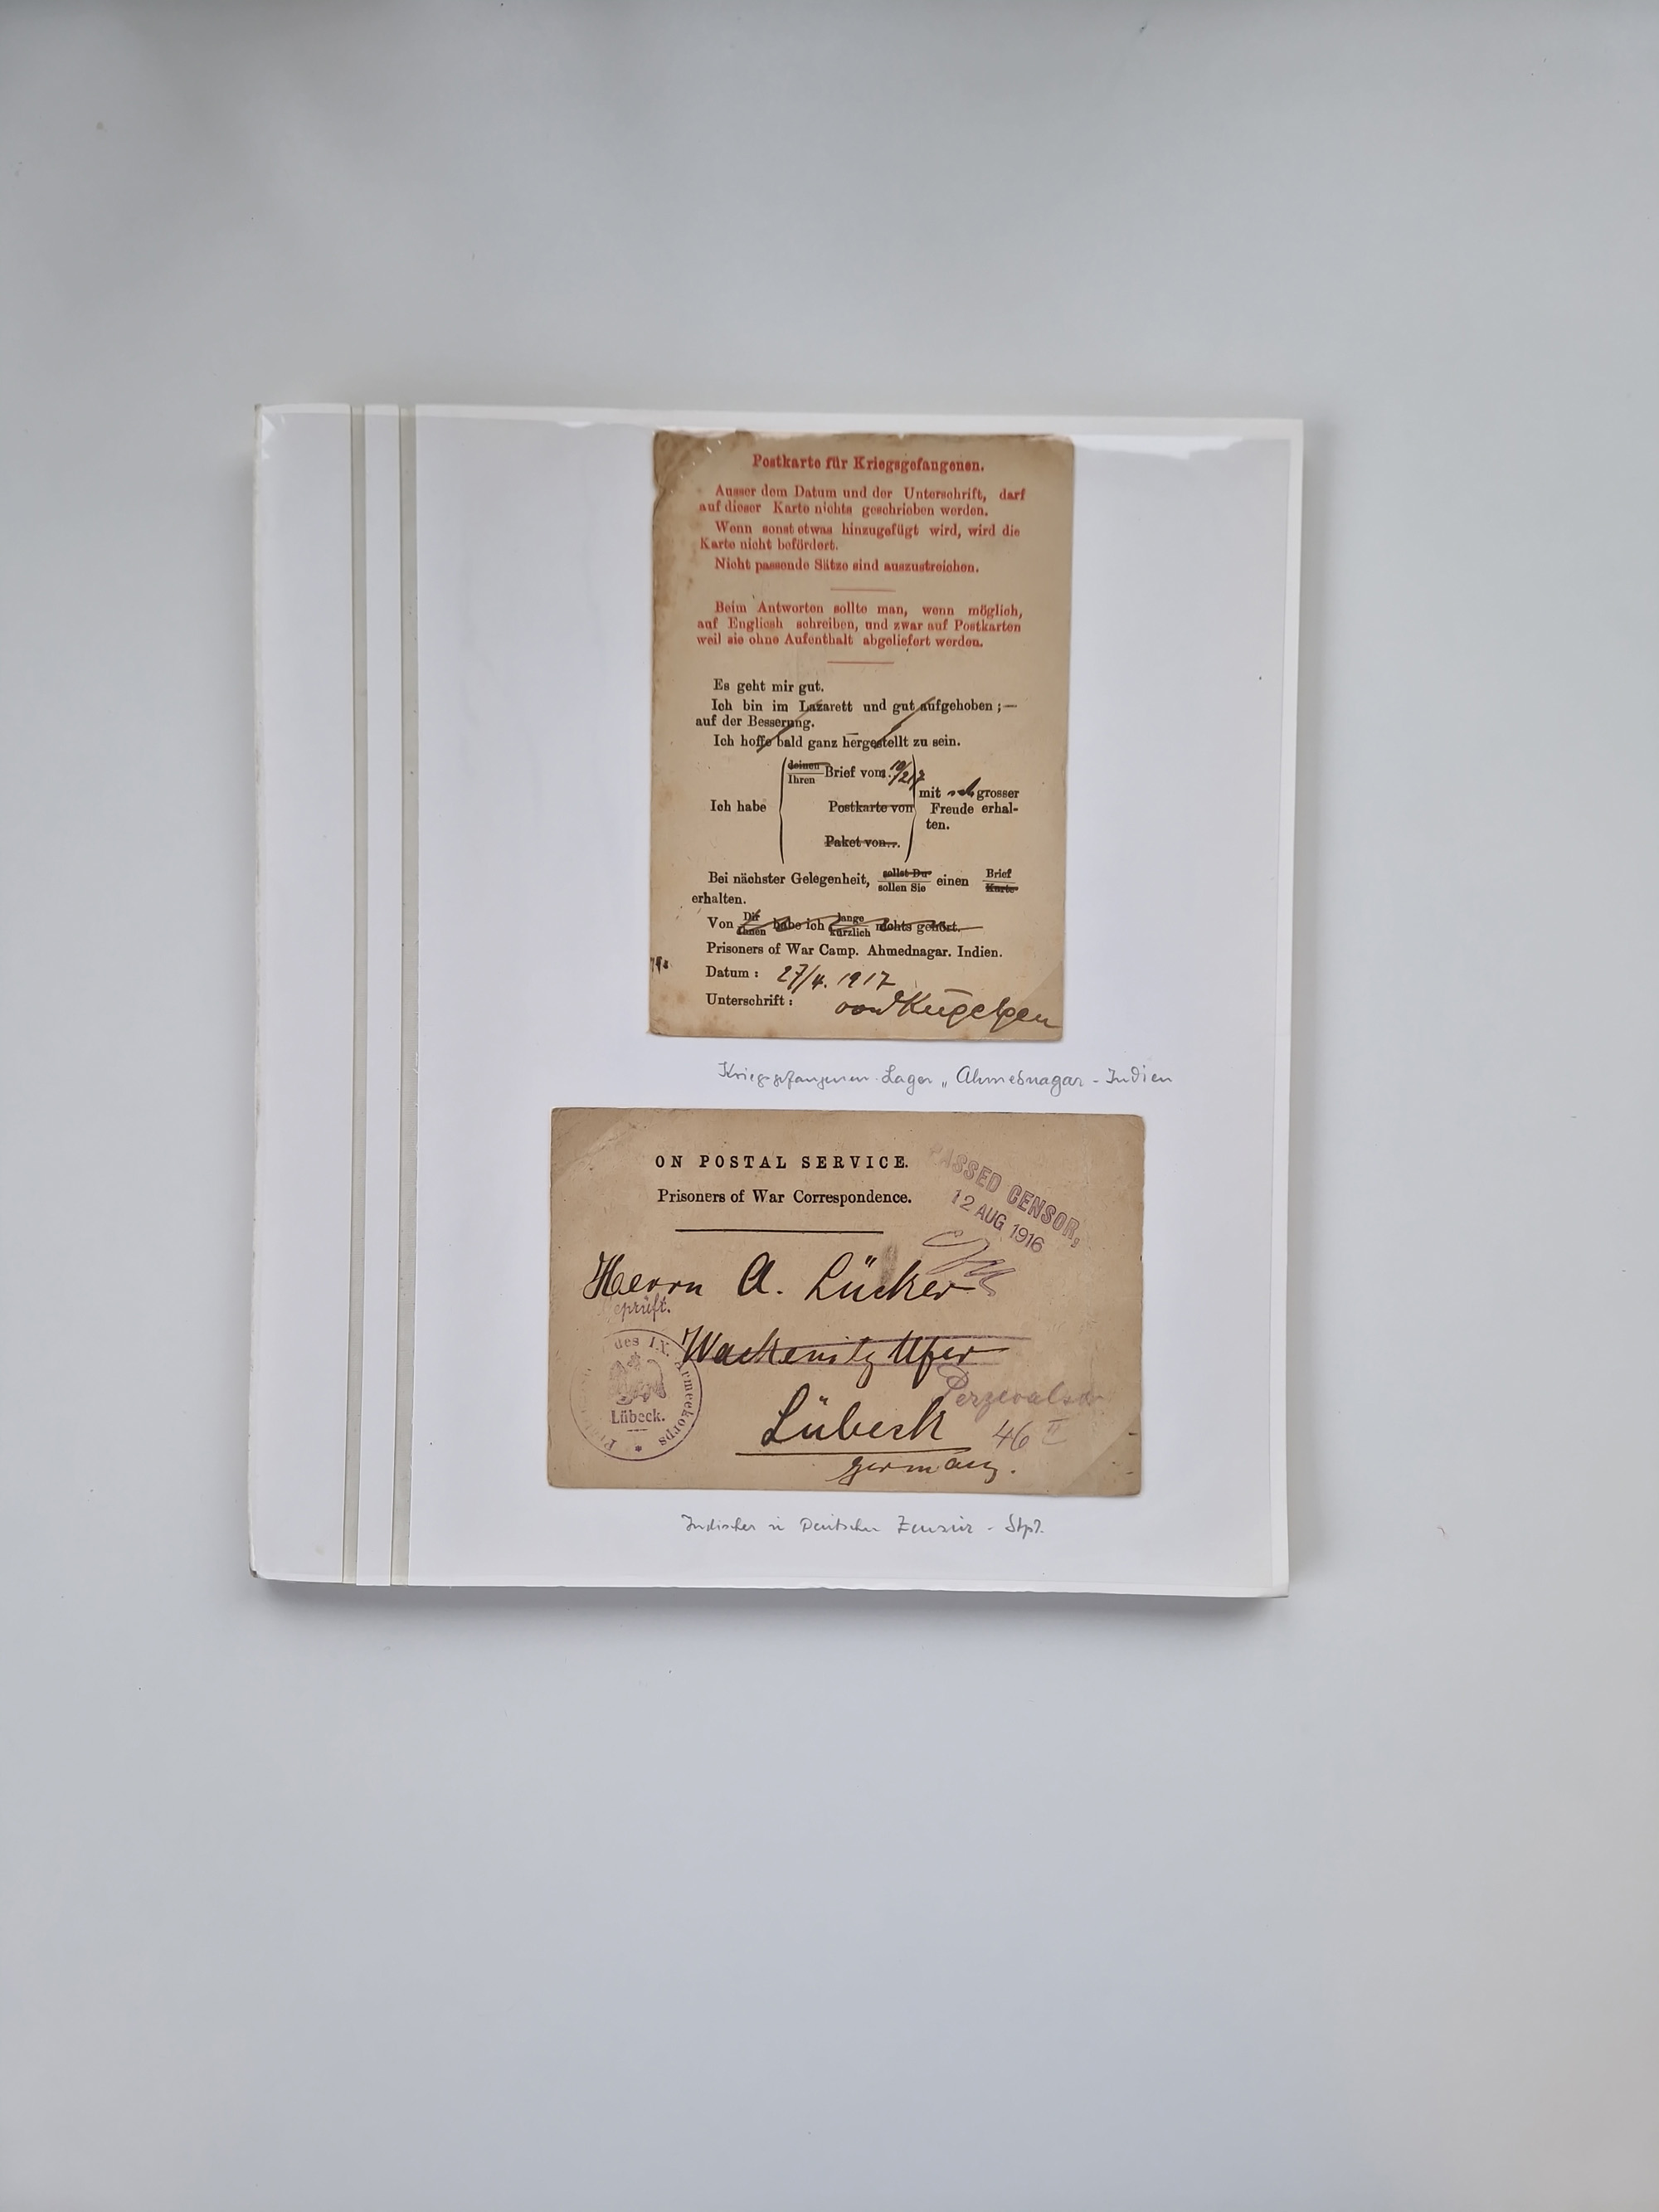 Postkarte für Kriegsgefangenen.
Ausser dem Datum und der Unterschrift, darf
auf dieser Karte nichts geschrieben werden.
Wenn sonst etwas hinzugefügt wird, wird die
Karte nicht befördert.
Nicht passende Sätze sind auszustreichen.
Beim Antworten sollte man, wenn möglich,
auf Englisch schreiben, und zwar auf Postkarten
weil sie ohne Aufenthalt abgeliefert werden.
Es geht mir gut.
Ich bin im Lazarett und gut aufgehoben ;—
auf der Besserung.
Ich hoffe bald ganz hergestellt zu sein.
deinen
Ihren Brief vom 10/2 17
mit grosser
Ich habe Postkarte von Freude erhal-
ten.
Paket von..
Bei nächster Gelegenheit, sollst Du einen Brief
sollen Sie Karte
erhalten.
Von Dir habe ich lange nichts gehört.
Ihnen kürzlich
Prisoners of War Camp. Ahmednagar. Indien.
Datum : 27/4. 1917
Unterschrift : von Kügelgen
Kriegsgefangenen-Lager „Ahmednagar - Indien
ON POSTAL SERVICE.
Prisoners of War Correspondence.
PASSED CENSOR,
12 AUG 1916
Herrn A. Lücker
Geprüft.
Wackenitz Ufer
des IX. Armeekorps
Lübeck.
46 II
Lübeck
Germany.
Indischer u Deutscher Zensur - Stpl.